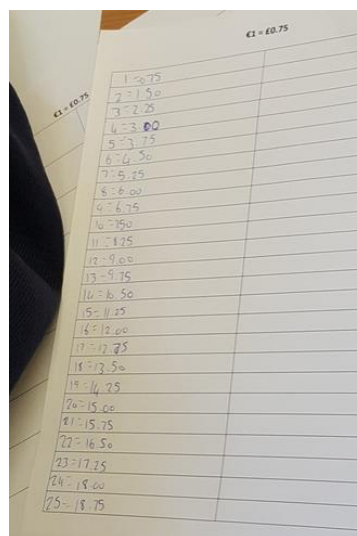 €1 = £0.75
€1 = £0.75
1 = 0.75
2 = 1.50
3 = 2.25
4 = 3.00
5 = 3.75
6 = 4.50
7 = 5.25
8 = 6.00
9 = 6.75
10 = 750
11 = 8.25
12 = 9.00
13 = 9.75
14 = 10.50
15 = 11.25
16 = 12.00
17 = 12.75
18 = 13.50
19 = 14.25
20 = 15.00
21 = 15.75
22 = 16.50
23 = 17.25
24 = 18.00
25 = 18.75